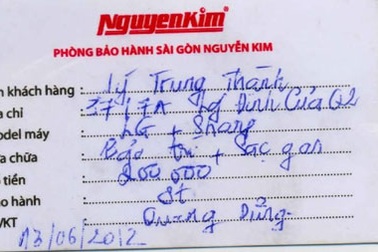 NguyenKim
PHÒNG BẢO HÀNH SÀI GÒN NGUYỄN KIM
n khách hàng : Lý Trung Thành
a chỉ : 37/7A Lg Đình Của Q2
odel máy : LG + Sharg
a chữa : Bảo trì + Sạc gas
tiền : 200 000
o hành : 3t
VKT Quang Dũng
13/06/2012